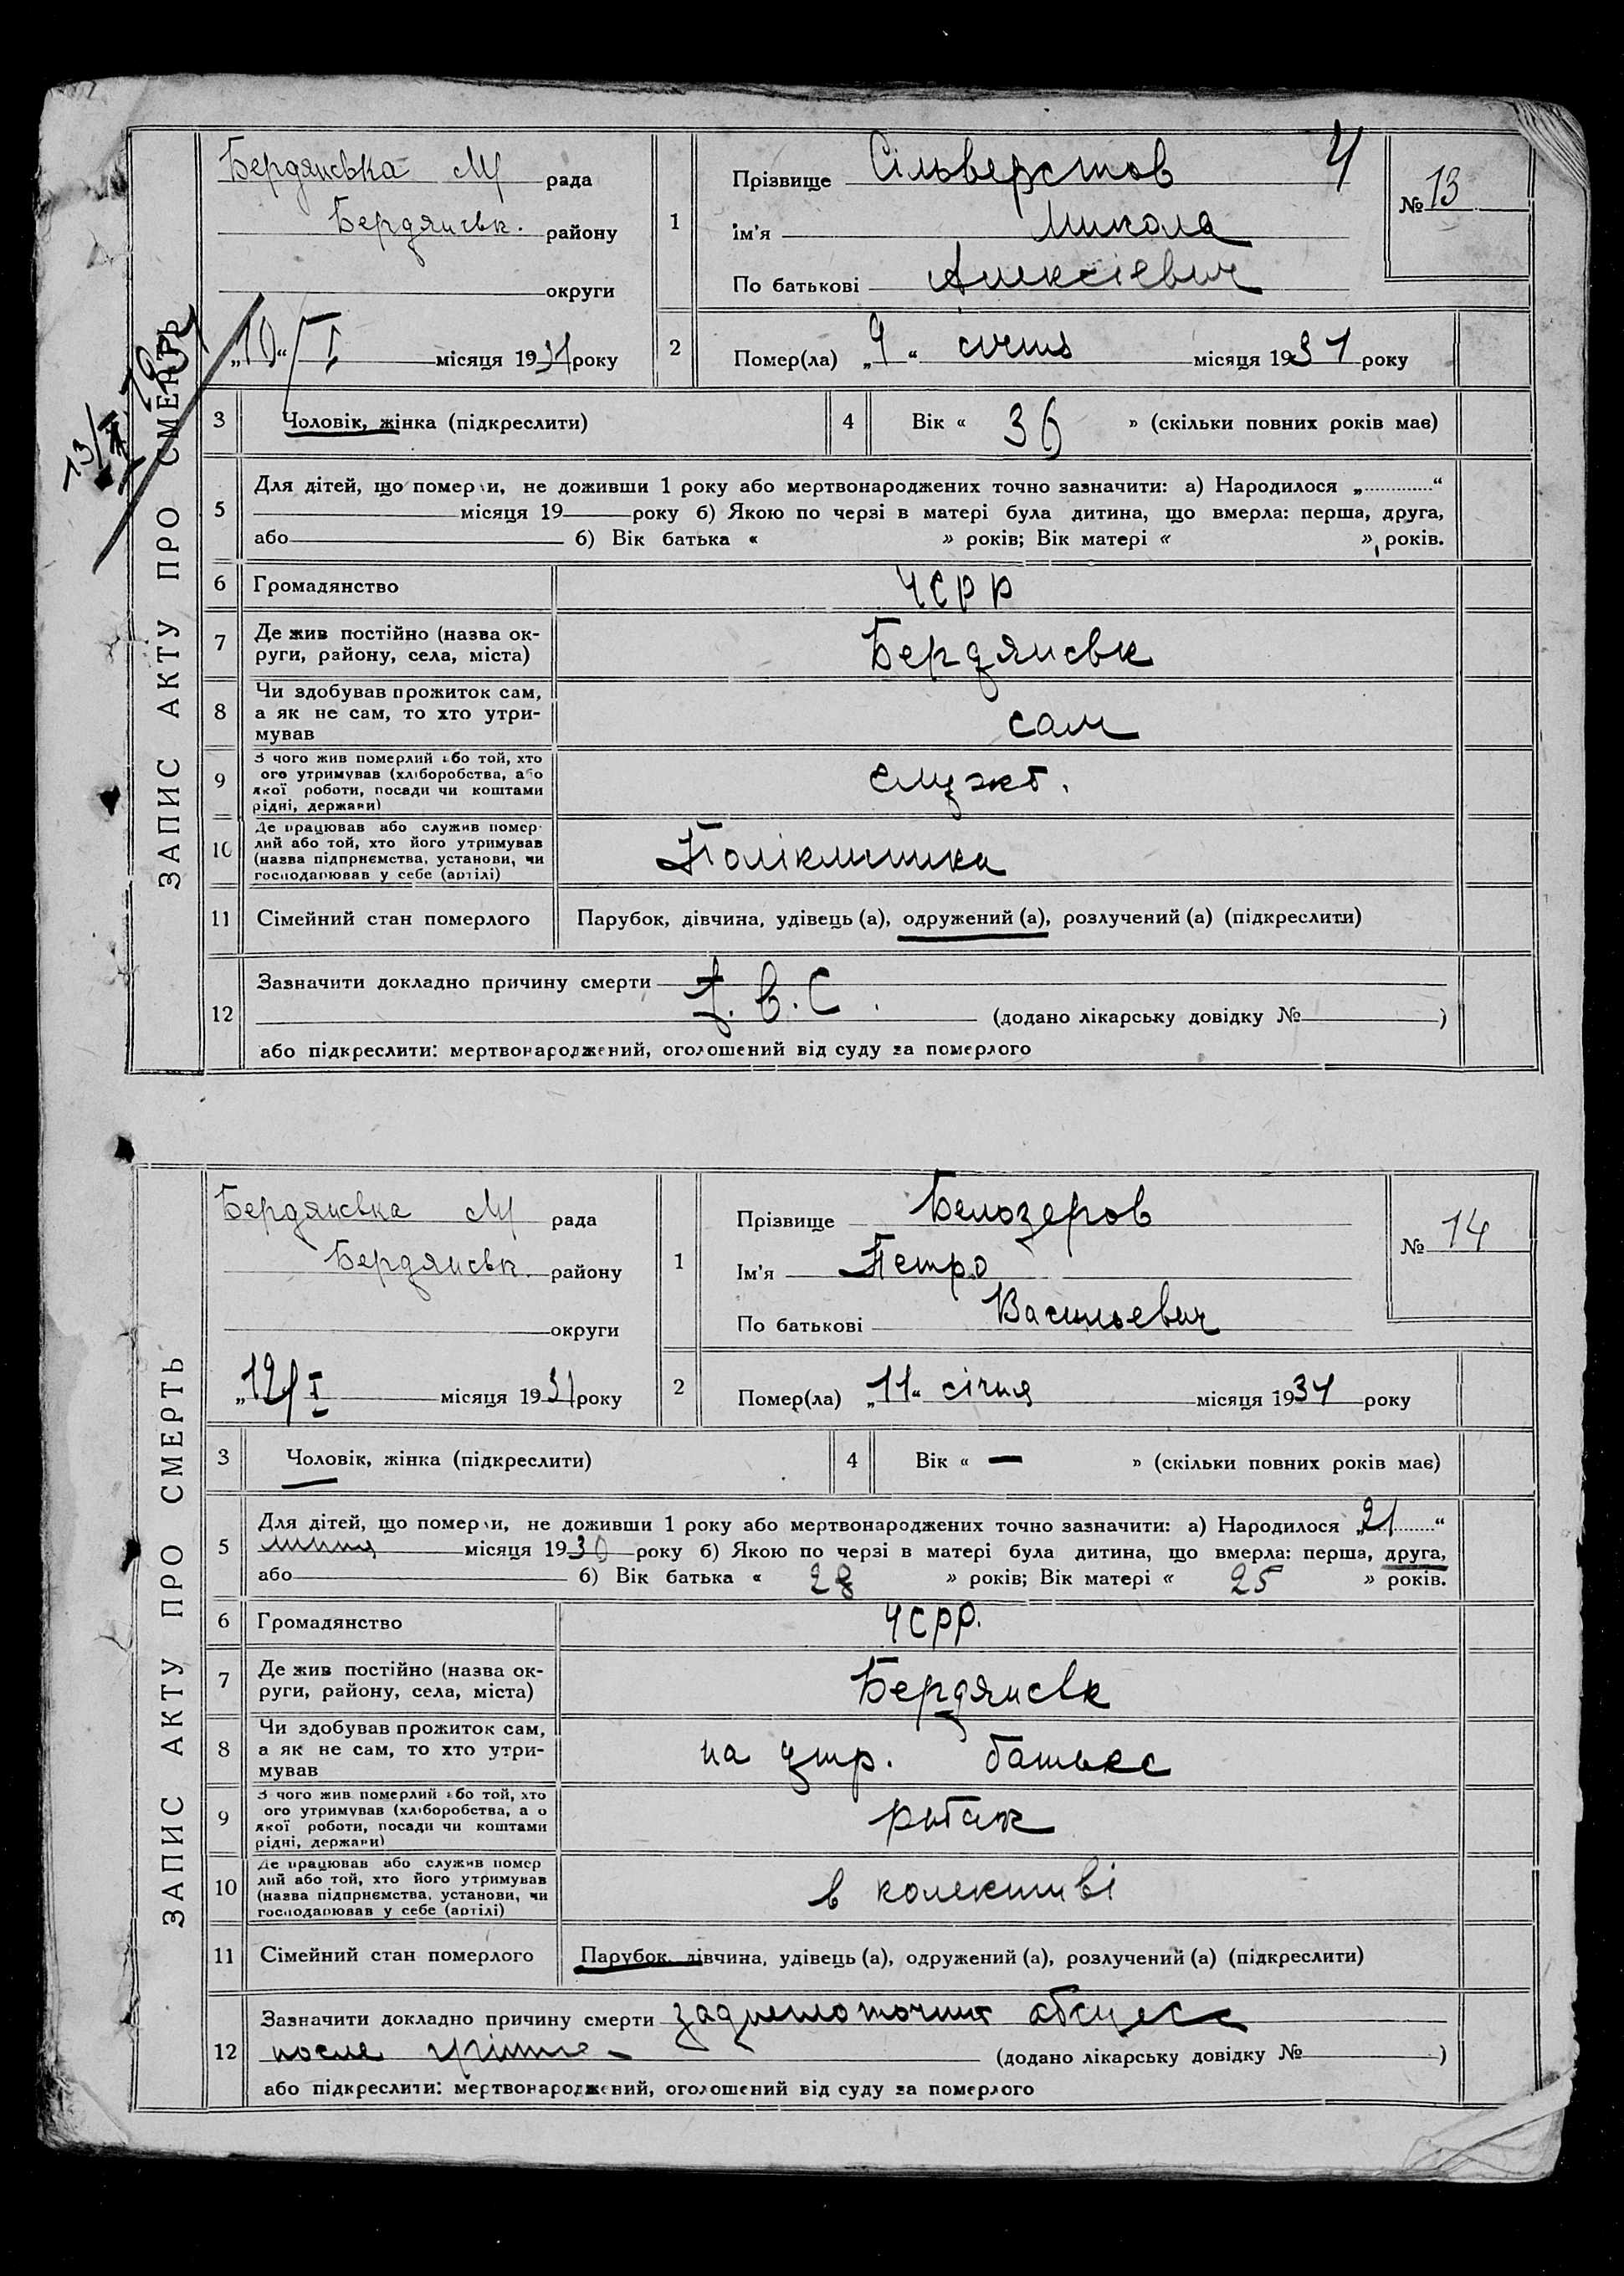 ЗАПИС АКТУ ПРО СМЕРТЬ
Бердянська М рада
Бердянськ. району
округи
„10“ I місяця 1931 року
1
Прізвище Сільверстов
4
Ім'я Микола
По батькові Алексієвич
№ 13
2
Помер(ла) „9“ січня місяця 1931 року
3 Чоловік, жінка (підкреслити)
4 Вік « 36 » (скільки повних років має)
5 Для дітей, що померли, не доживши 1 року або мертвонароджених точно зазначити: а) Народилося „ “
місяця 19 року б) Якою по черзі в матері була дитина, що вмерла: перша, друга,
або б) Вік батька « » років; Вік матері « » років.
6 Громадянство УСРР
7 Де жив постійно (назва ок-
руги, району, села, міста) Бердянськ
8 Чи здобував прожиток сам,
а як не сам, то хто утри-
мував сам
9 З чого жив померлий або той, хто
ого утримував (хліборобства, або
якої роботи, посади чи коштами
рідні, держави) служб.
10 Де працював або служив помер-
лий або той, хто його утримував
(назва підприємства, установи, чи
господарював у себе (артілі) Поліклиника
11 Сімейний стан померлого Парубок, дівчина, удівець (а), одружений (а), розлучений (а) (підкреслити)
12 Зазначити докладно причину смерти
(додано лікарську довідку № )
або підкреслити: мертвонароджений, оголошений від суду за померлого
ЗАПИС АКТУ ПРО СМЕРТЬ
Бердянська М рада
Бердянськ. району
округи
„12“ I місяця 1931 року
1
Прізвище Белозеров
Ім'я Петро
По батькові Васильевич
№ 14
2
Помер(ла) „11“ січня місяця 1931 року
3 Чоловік, жінка (підкреслити)
4 Вік « — » (скільки повних років має)
5 Для дітей, що померли, не доживши 1 року або мертвонароджених точно зазначити: а) Народилося „21“
липня місяця 1930 року б) Якою по черзі в матері була дитина, що вмерла: перша, друга,
або б) Вік батька « 28 » років; Вік матері « 25 » років.
6 Громадянство УСРР.
7 Де жив постійно (назва ок-
руги, району, села, міста) Бердянськ
8 Чи здобував прожиток сам,
а як не сам, то хто утри-
мував на утр. батька
9 З чого жив померлий або той, хто
ого утримував (хліборобства, а о
якої роботи, посади чи коштами
рідні, держави) рибак
10 Де працював або служив помер
лий або той, хто його утримував
(назва підприємства, установи, чи
господарював у себе (артілі) в колективі
11 Сімейний стан померлого Парубок, дівчина, удівець (а), одружений (а), розлучений (а) (підкреслити)
12 Зазначити докладно причину смерти абсцесс
после (додано лікарську довідку № )
або підкреслити: мертвонароджений, оголошений від суду за померлого